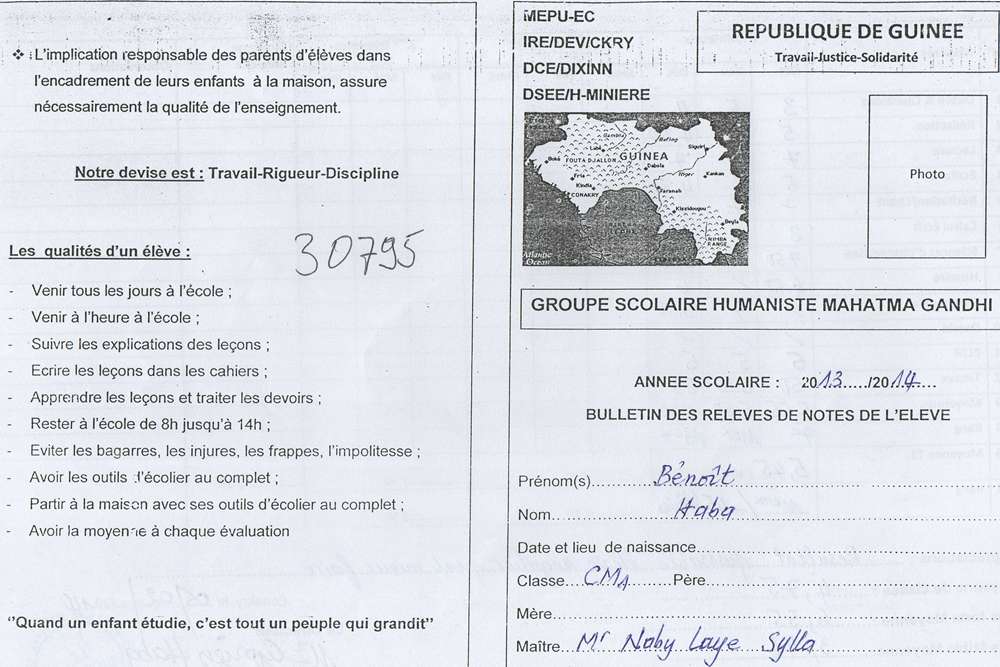 ❖ L'implication responsable des parents d'élèves dans
l'encadrement de leurs enfants à la maison, assure
nécessairement la qualité de l'enseignement.
Notre devise est : Travail-Rigueur-Discipline
30795
Les qualités d'un élève :
- Venir tous les jours à l'école ;
- Venir à l'heure à l'école ;
- Suivre les explications des leçons ;
- Ecrire les leçons dans les cahiers ;
- Apprendre les leçons et traiter les devoirs ;
- Rester à l'école de 8h jusqu'à 14h ;
- Eviter les bagarres, les injures, les frappes, l'impolitesse ;
- Avoir les outils d'écolier au complet ;
- Partir à la maison avec ses outils d'écolier au complet ;
- Avoir la moyenne à chaque évaluation
''Quand un enfant étudie, c'est tout un peuple qui grandit''
MEPU-EC
IRE/DEV/CKRY
DCE/DIXINN
DSEE/H-MINIERE
REPUBLIQUE DE GUINEE
Travail-Justice-Solidarité
Photo
Gambia
Bafing
Labé
Siguiri
Boké
FOUTA DJALLON
GUINEA
Dabola
Fria
Niger
Kankan
Kindia
Faranah
CONAKRY
Kissidougou
Beyla
NIMBA
RANGE
Atlantic
Ocean
GROUPE SCOLAIRE HUMANISTE MAHATMA GANDHI
ANNEE SCOLAIRE : 2013...../2014....
BULLETIN DES RELEVES DE NOTES DE L'ELEVE
Prénom(s)..............Bénoît
Nom...........................Haba
Date et lieu de naissance.....................
Classe....CM1............Père.....................
Mère.....................
Maître....Mr Naby Laye Sylla